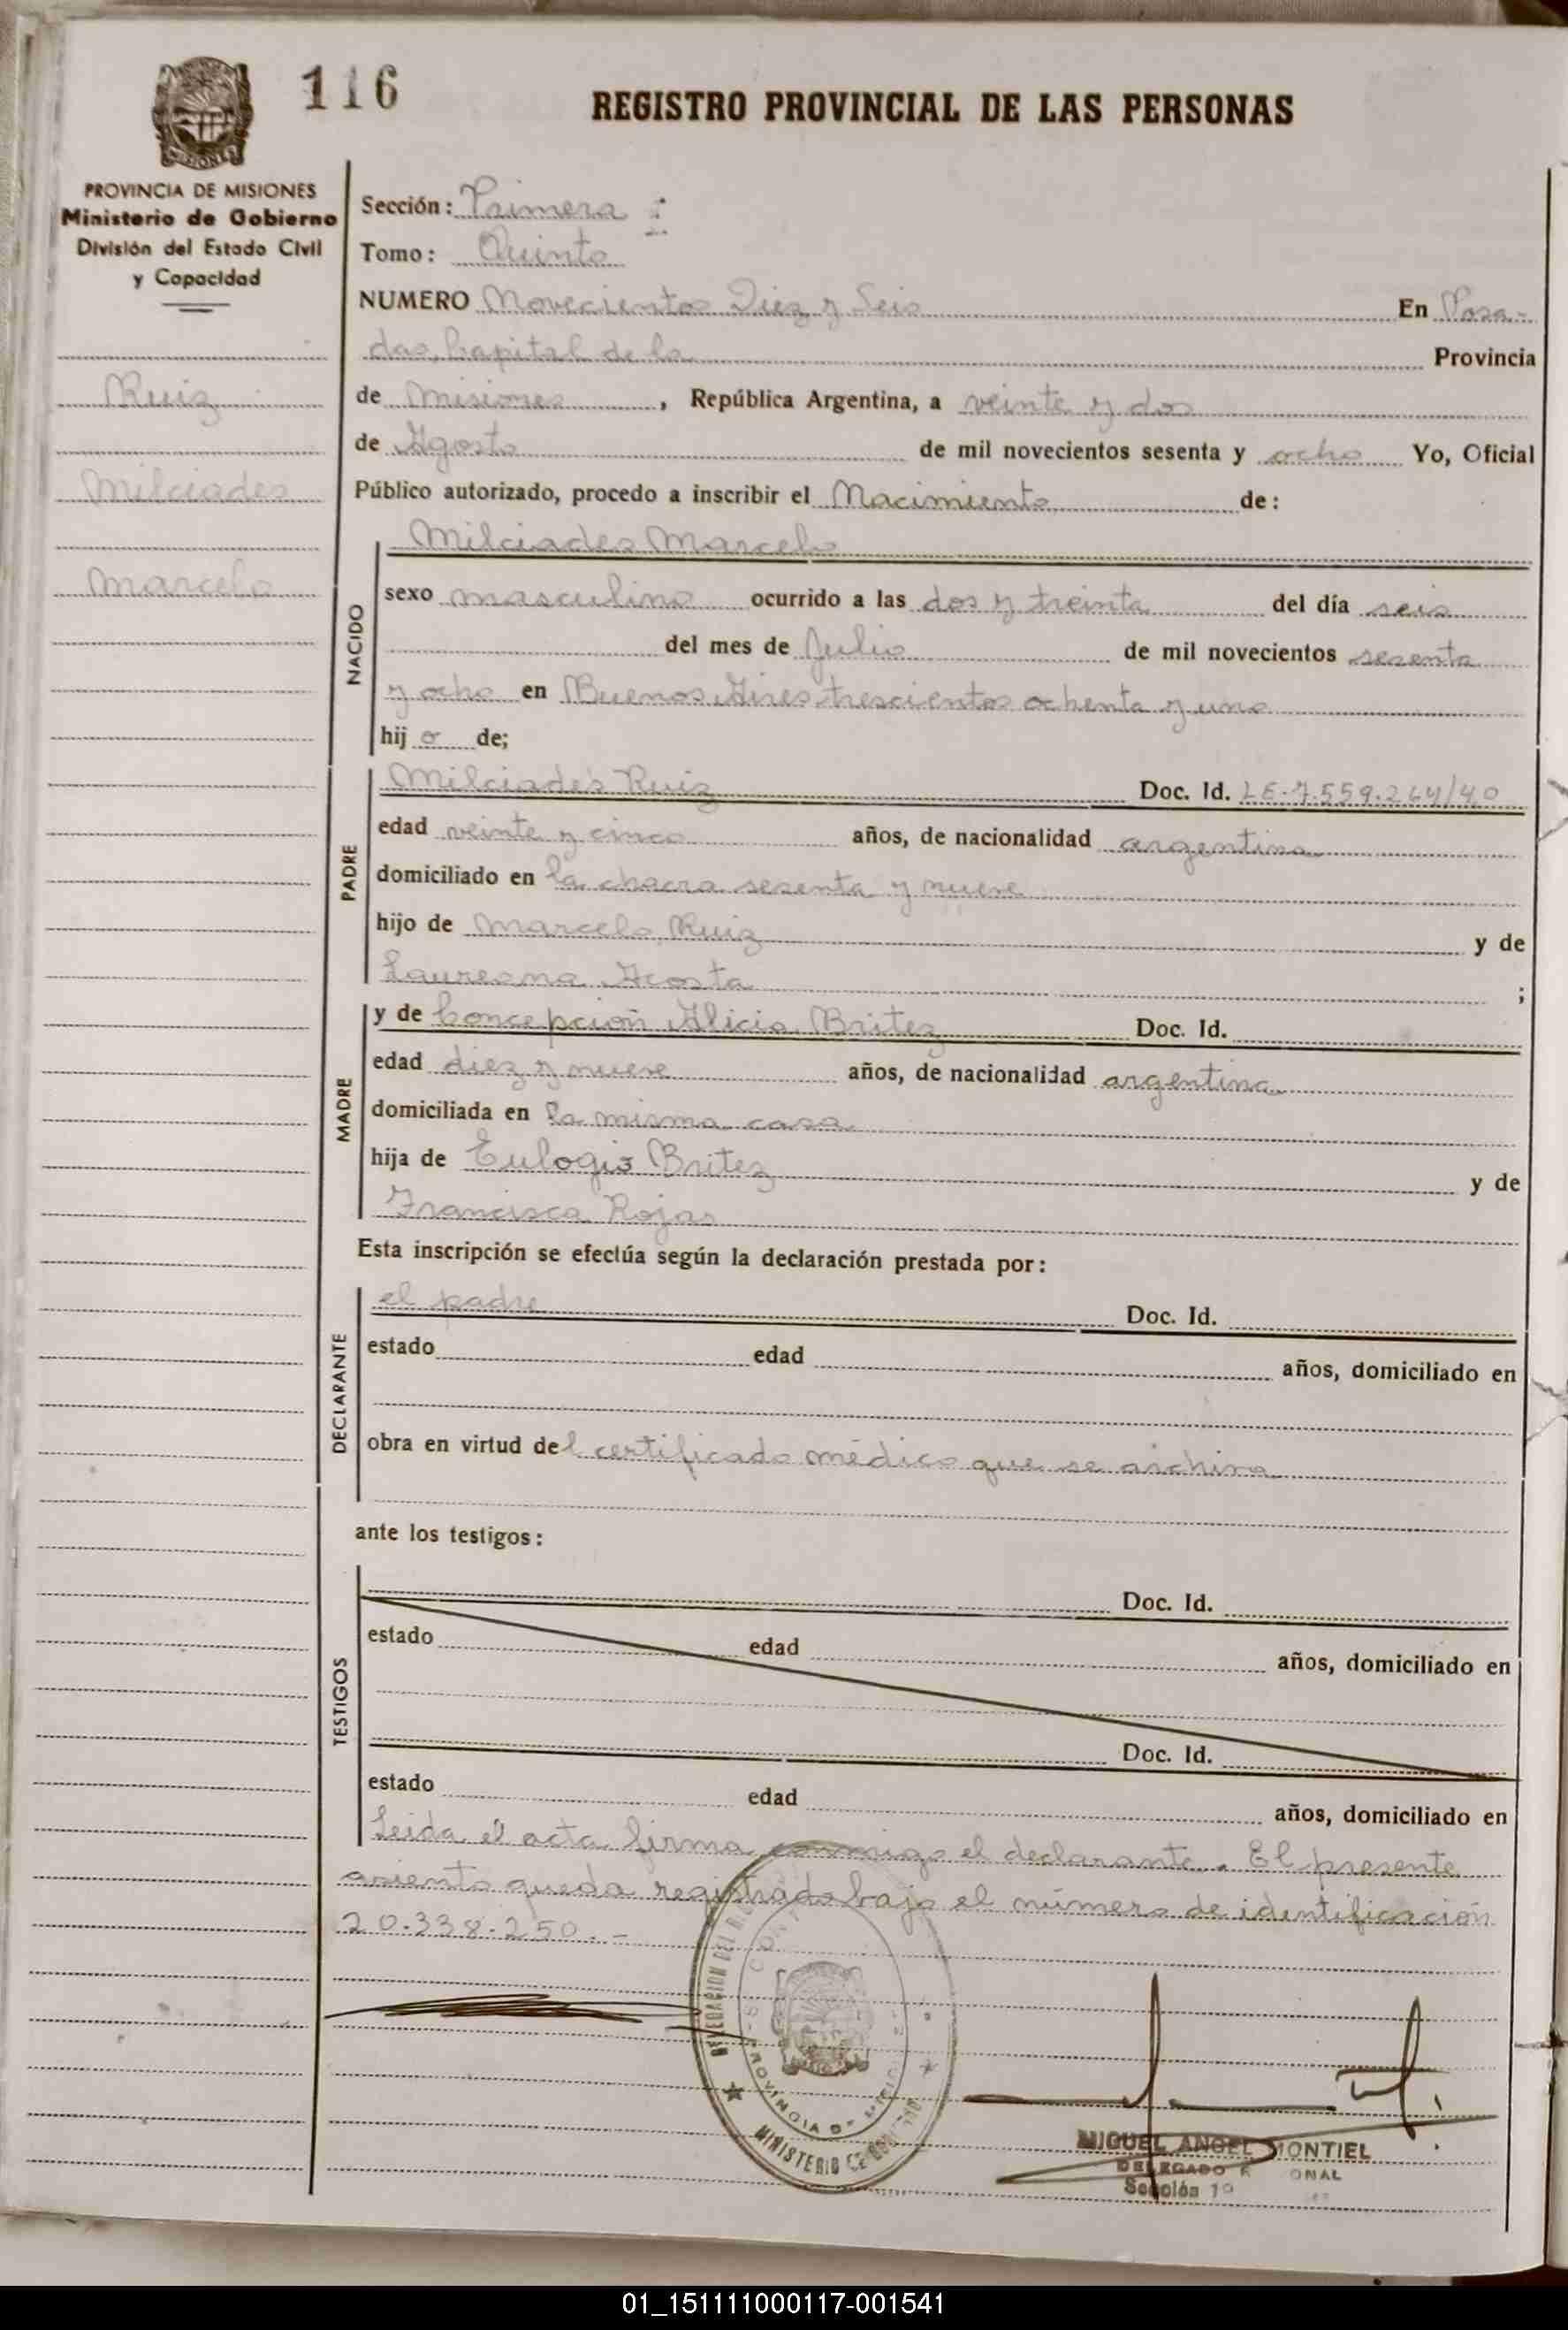 116
REGISTRO PROVINCIAL DE LAS PERSONAS
MISIONES
PROVINCIA DE MISIONES
Ministerio de Gobierno
División del Estado Civil
y Capacidad
Ruiz
Milciades
Marcelo
Sección: Primera
Tomo: Quinto
NUMERO Novecientos Diez y Seis En Posa-
das, Capital de la Provincia
de Misiones, República Argentina, a veinte y dos
de Agosto de mil novecientos sesenta y ocho Yo, Oficial
Público autorizado, procedo a inscribir el Nacimiento de:
NACIDO
Milciades Marcelo
sexo masculino ocurrido a las dos y treinta del día seis
del mes de Julio de mil novecientos sesenta
y ocho en Buenos Aires trescientos ochenta y uno
hijo de;
PADRE
Milciades Ruiz Doc. Id. LE-7.559.264/40
edad veinte y cinco años, de nacionalidad argentina
domiciliado en la chacra sesenta y nueve
hijo de Marcelo Ruiz y de
Laureana Acosta ;
MADRE
y de Concepción Alicia Britez Doc. Id.
edad diez y nueve años, de nacionalidad argentina
domiciliada en la misma casa
hija de Eulogio Britez y de
Francisca Rojas
Esta inscripción se efectúa según la declaración prestada por:
DECLARANTE
el padre Doc. Id.
estado edad años, domiciliado en
obra en virtud del certificado médico que se archiva
ante los testigos:
TESTIGOS
Doc. Id.
estado edad años, domiciliado en
Doc. Id.
estado edad años, domiciliado en
Leida el acta firma conmigo el declarante. El presente
asiento queda registrado bajo el número de identificación
20.338.250.-
MINISTERIO DE GOBIERNO
PROVINCIA DE
MIGUEL ANGEL MONTIEL
DELEGADO
Sección 1º
01_151111000117-001541